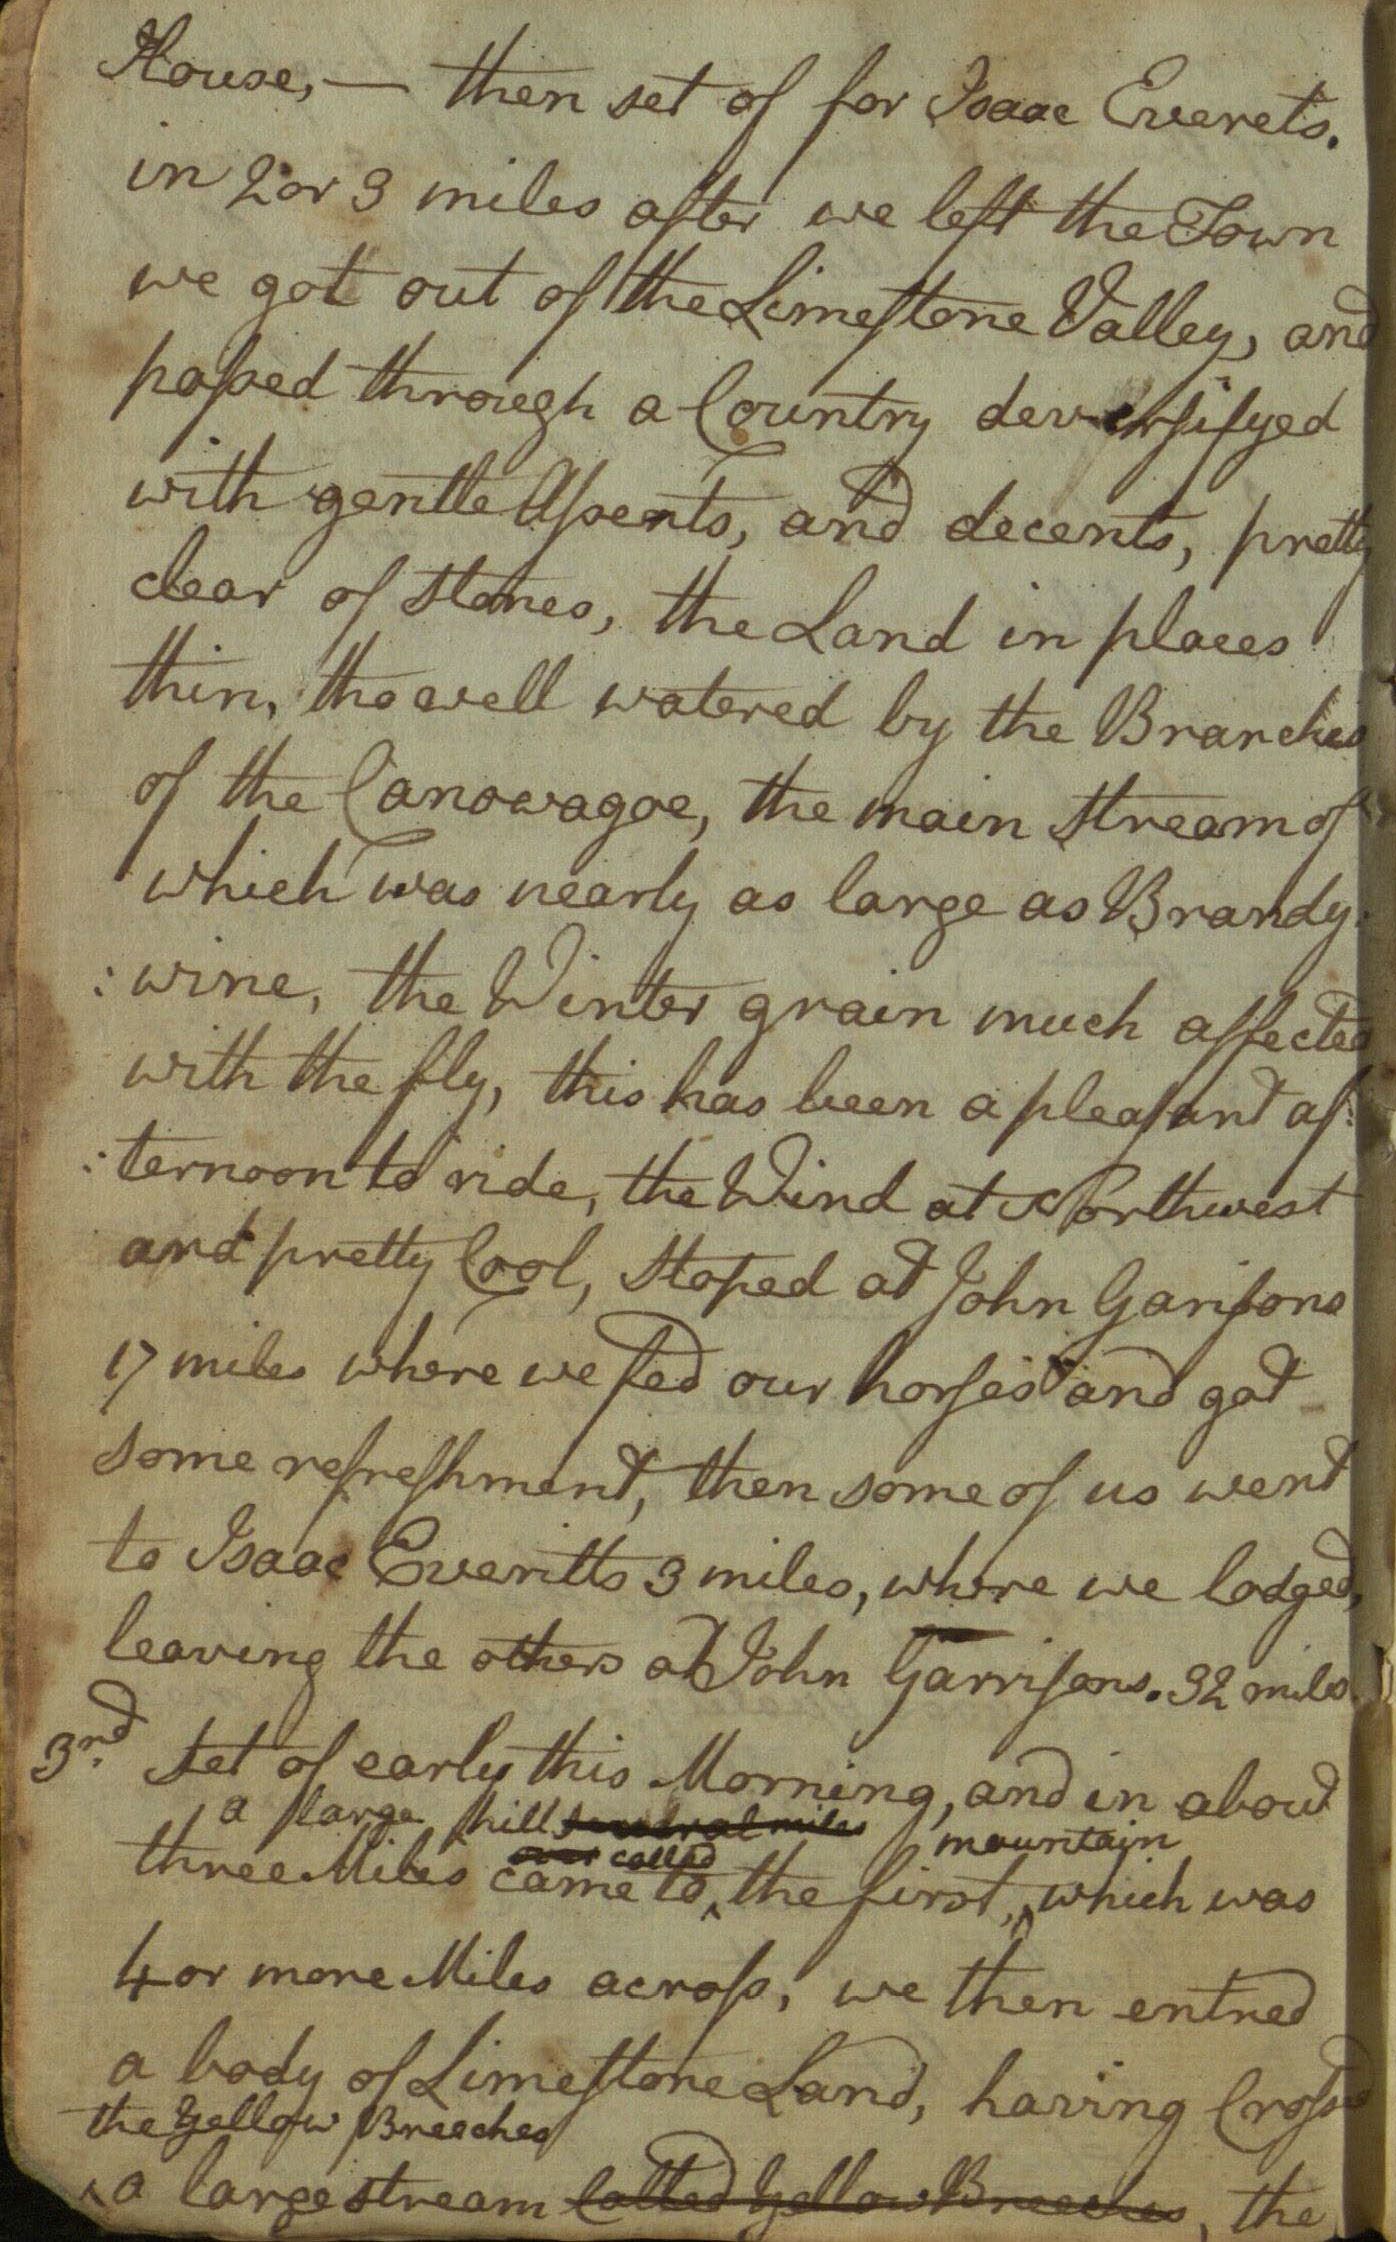 House, — then set of for Isaac Everets.
in 2 or 3 miles after we left the Town
we got out of the Limestone Valley, and
passed through a Country deversifyed
with gentle Assents, and decents, pretty
clear of stones, the Land in places
thin, tho well watered by the Branches
of the Canowagoe, the main stream of
which was nearly as large as Brandy:
:wine, the Winter grain much affected
with the fly, this has been a pleasant af:
:ternoon to ride, the Wind at Northwest
and pretty Cool, stoped at John Garisons
17 miles where we fed our horses and got
some refreshment, then some of us went
to Isaac Everitts 3 miles, where we lodged,
leaving the others at John Garrisons. 32 miles
3rd. set of early this Morning, and in about
a large hill several miles
over called mountain
three Miles came to ^ the first, ^ which was
4 or more Miles across, we then entred
a body of Limestone Land, having Crossed
the Yellow Breeches
^ a large stream Called Yellow Breeches, the